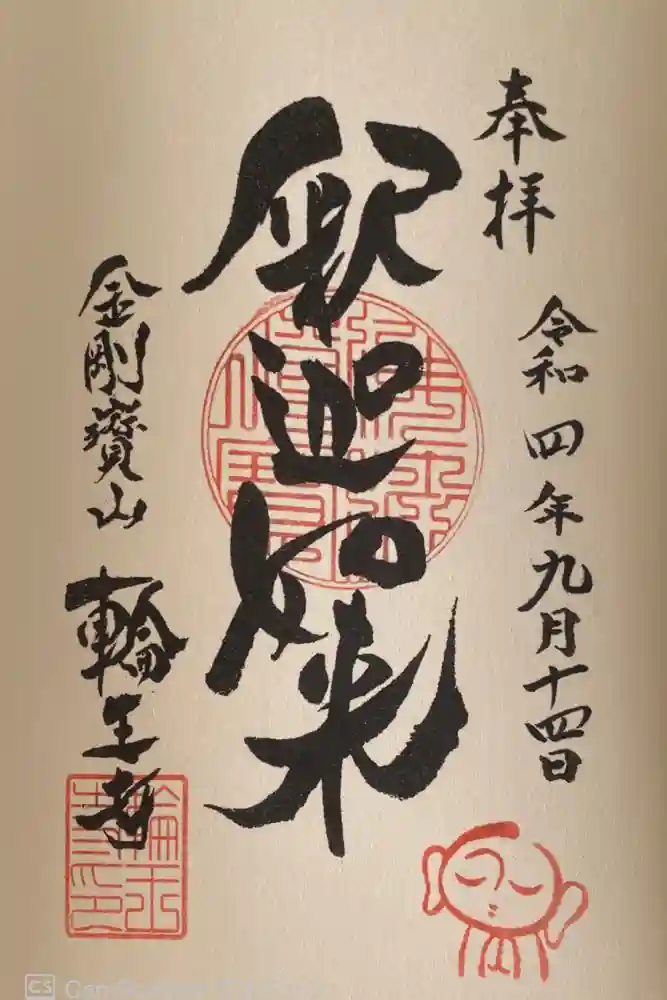 奉拝
令和四年九月十四日
釈迦如来
金剛寳山
輪王寺
CS